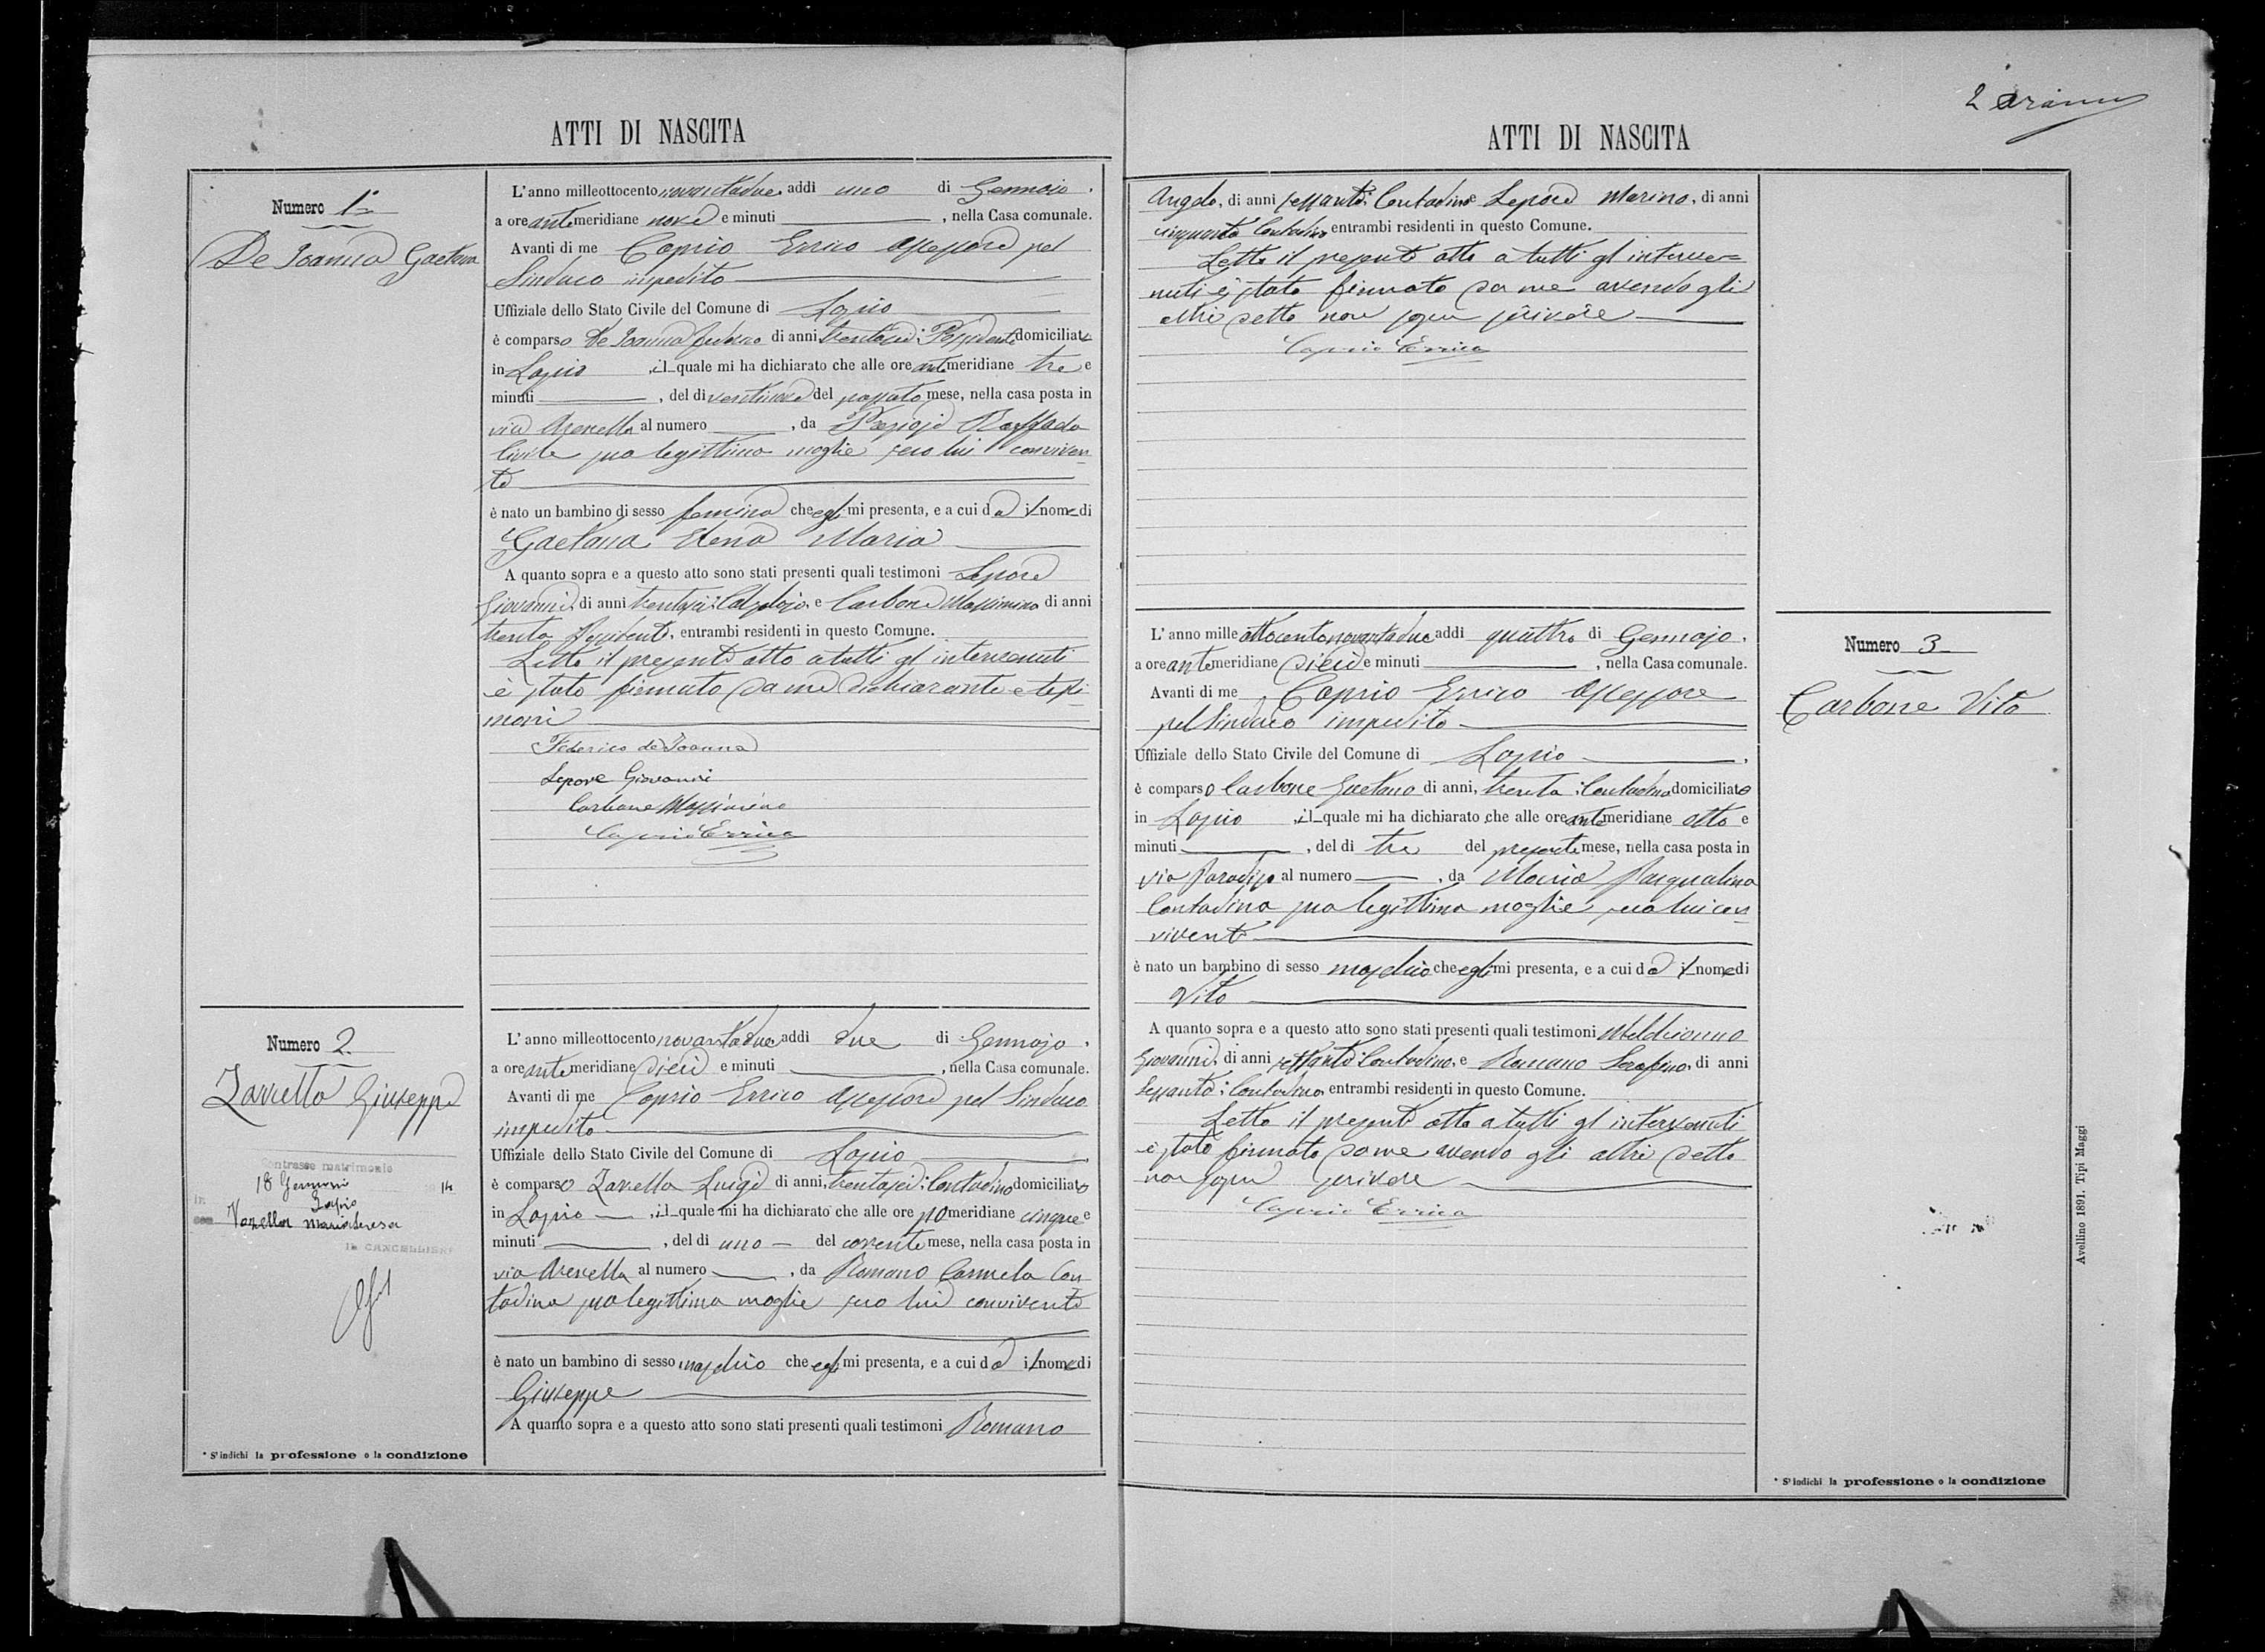 ATTI DI NASCITA
Numero 1°
De Joanna Gaetana
L'anno milleottocento novantadue addi uno di Gennaio,
a ore antemeridiane nove e minuti , nella Casa comunale.
Avanti di me Caprio Errico Assessore pel
Sindaco impedito
Uffiziale dello Stato Civile del Comune di Lapio
è comparso De Joanna di anni Possidente domiciliato
in Lapio , il quale mi ha dichiarato che alle ore antemeridiane tre e
minuti , del di ventinove del passato mese, nella casa posta in
via Arenella al numero , da Raffaela
Civile sua legittima moglie seco lui conviven
te
è nato un bambino di sesso feminino che egli mi presenta, e a cui dà il nome di
Gaetana Elena Maria
A quanto sopra e a questo atto sono stati presenti quali testimoni Lepore
Giovanni, di anni trentasei Calzolajo, e Carbone Massimino di anni
trenta Possidente, entrambi residenti in questo Comune.
Letto il presente atto a tutti gl'intervenuti
è stato firmato da me dichiarante e testi
moni
Federico de Joanna
Lepore Giovanni
Carbone Massimino
Caprio Errico
Numero 2.
Zarrella Giuseppe
Contrasse matrimonio
18 Gennaio 14
in Lapio
con Vozella Mariateresa
IL CANCELLIERE
L'anno milleottocento novantadue addi due di Gennajo,
a ore antemeridiane dieci e minuti , nella Casa comunale.
Avanti di me Caprio Errico Assessore pel Sindaco
impedito
Uffiziale dello Stato Civile del Comune di Lapio
è comparso Zarrella Luigi di anni, trentasei; Contadino domiciliato
in Lapio , il quale mi ha dichiarato che alle ore pomeridiane cinque e
minuti , del di uno del corrente mese, nella casa posta in
via Arenella al numero , da Romano Carmela Con
tadina sua legittima moglie seco lui convivente
è nato un bambino di sesso maschio che egli mi presenta, e a cui dà il nome di
Giuseppe
A quanto sopra e a questo atto sono stati presenti quali testimoni Romano
* S'indichi la professione o la condizione
2
ATTI DI NASCITA
Angelo, di anni sessanta; Contadino e Lepore Marino, di anni
cinquanta Contadino entrambi residenti in questo Comune.
Letto il presente atto a tutti gl'interve=
nuti è stato firmato da me avendo gli
altri detto non saper scrivere
Caprio Errico
Numero 3
Carbone Vito
L'anno mille ottocentonovantadue addi quattro di Gennajo,
a ore antemeridiane dieci e minuti , nella Casa comunale.
Avanti di me Caprio Errico Assessore
pel Sindaco impedito
Uffiziale dello Stato Civile del Comune di Lapio
è comparso Carbone Gaetano di anni, trenta; Contadino domiciliato
in Lapio , il quale mi ha dichiarato che alle ore antemeridiane otto e
minuti , del di tre del presente mese, nella casa posta in
via Paradiso al numero , da Pasqualina
Contadina sua legittima moglie seco lui con
vivente
è nato un bambino di sesso maschio che egli mi presenta, e a cui dà il nome di
Vito
A quanto sopra e a questo atto sono stati presenti quali testimoni
Giovanni, di anni settanta Contadino, e Romano Serafino, di anni
Sessanta; Contadino, entrambi residenti in questo Comune.
Letto il presente atto a tutti gl'intervenuti
è stato firmato da me avendo gli altri detto
non saper scrivere
Caprio Errico
* S'indichi la professione o la condizione
Avellino 1891. Tipi Maggi